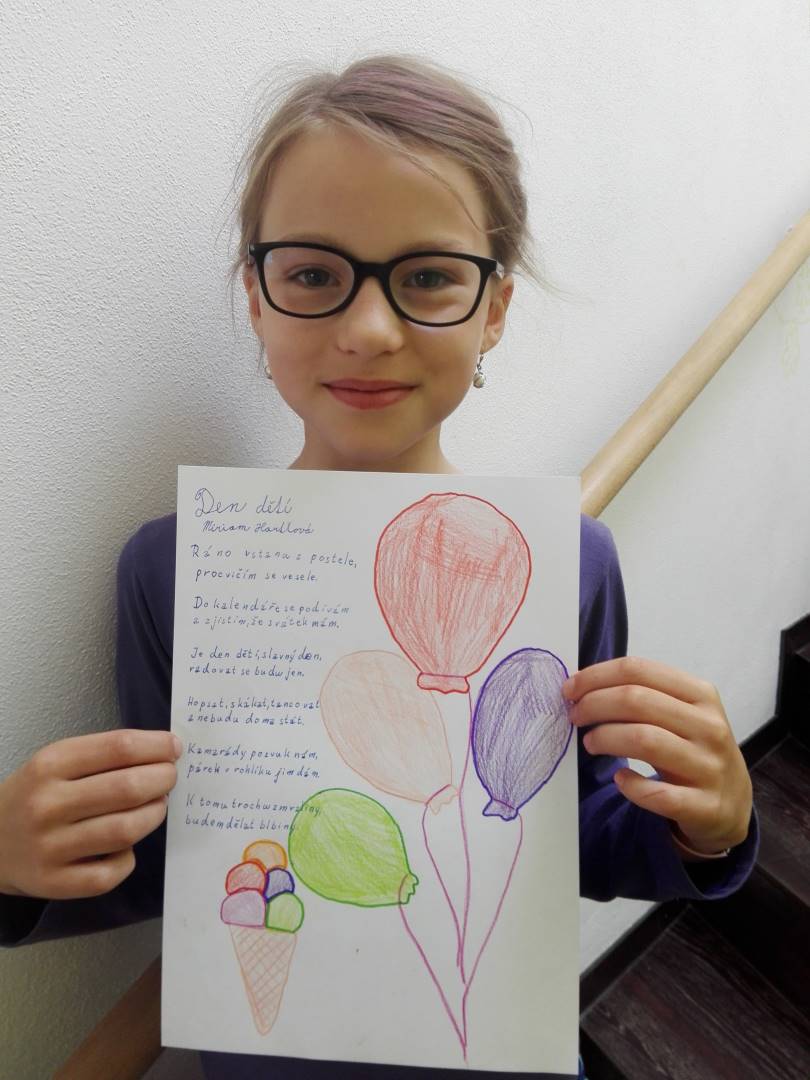 Den dětí
Miriam Hartlová
Ráno vstanu z postele,
procvičím se vesele.
Do kalendáře se podívám
a zjistím, že svátek mám.
Je den dětí, slavný den,
radovat se budu jen.
Hopsat, skákat, tancovat
a nebudu doma stát.
Kamarády pozvu k nám,
párek v rohlíku jim dám.
K tomu trochu zmrzliny,
budem dělat blbiny.